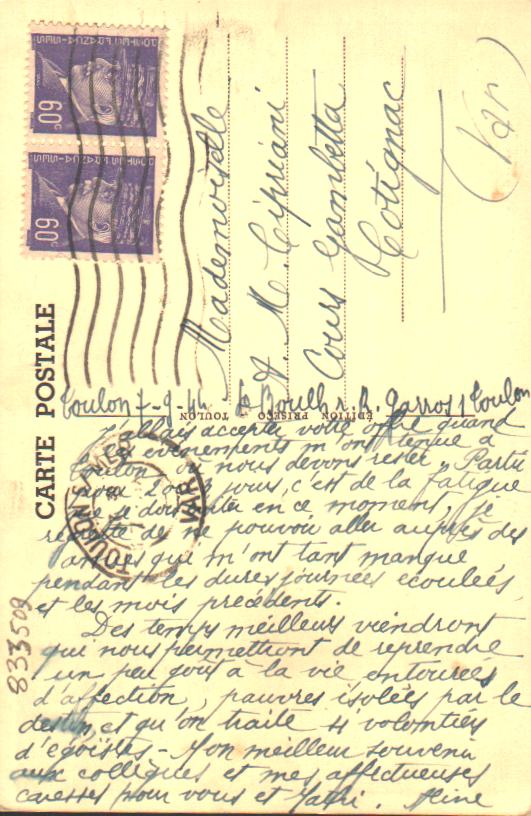 60c
60c
POSTES
POSTES
CARTE POSTALE
Mademoiselle
A. M. Cipriani
Cours Gambetta
Cotignac
(Var)
ÉDITION PRISECO TOULON
TOULON
VAR
Toulon 7-9-44 Le r. R. Garros Toulon
J'allais accepter votre offre quand
les évènements m'ont tenue à
Toulon où nous devons rester. Partir
pour 2 ou 3 jours, c'est de la fatigue
en ce moment, je
regrette de ne pouvoir aller auprès des
amies qui m'ont tant manqué
pendant les dures journées écoulées
et les mois précédents.
Des temps meilleurs viendront
qui nous permettront de reprendre
un peu goût à la vie entourées
d'affection, pauvres isolées par le
destin, et qu'on traite volontiers
d'égoïstes - Mon meilleur souvenir
aux collègues et mes affectueuses
caresses pour vous et
833509